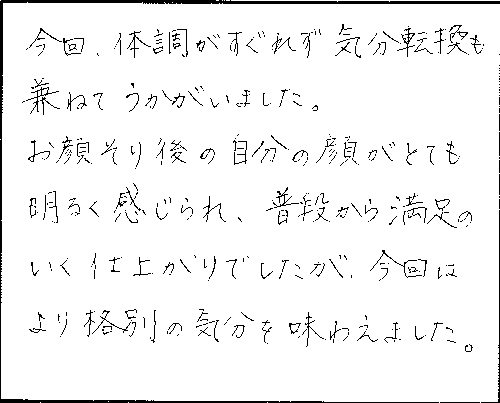 今回、体調がすぐれず気分転換も
兼ねてうかがいました。
お顔そり後の自分の顔がとても
明るく感じられ、普段から満足の
いく仕上がりでしたが、今回は
より格別の気分を味わえました。